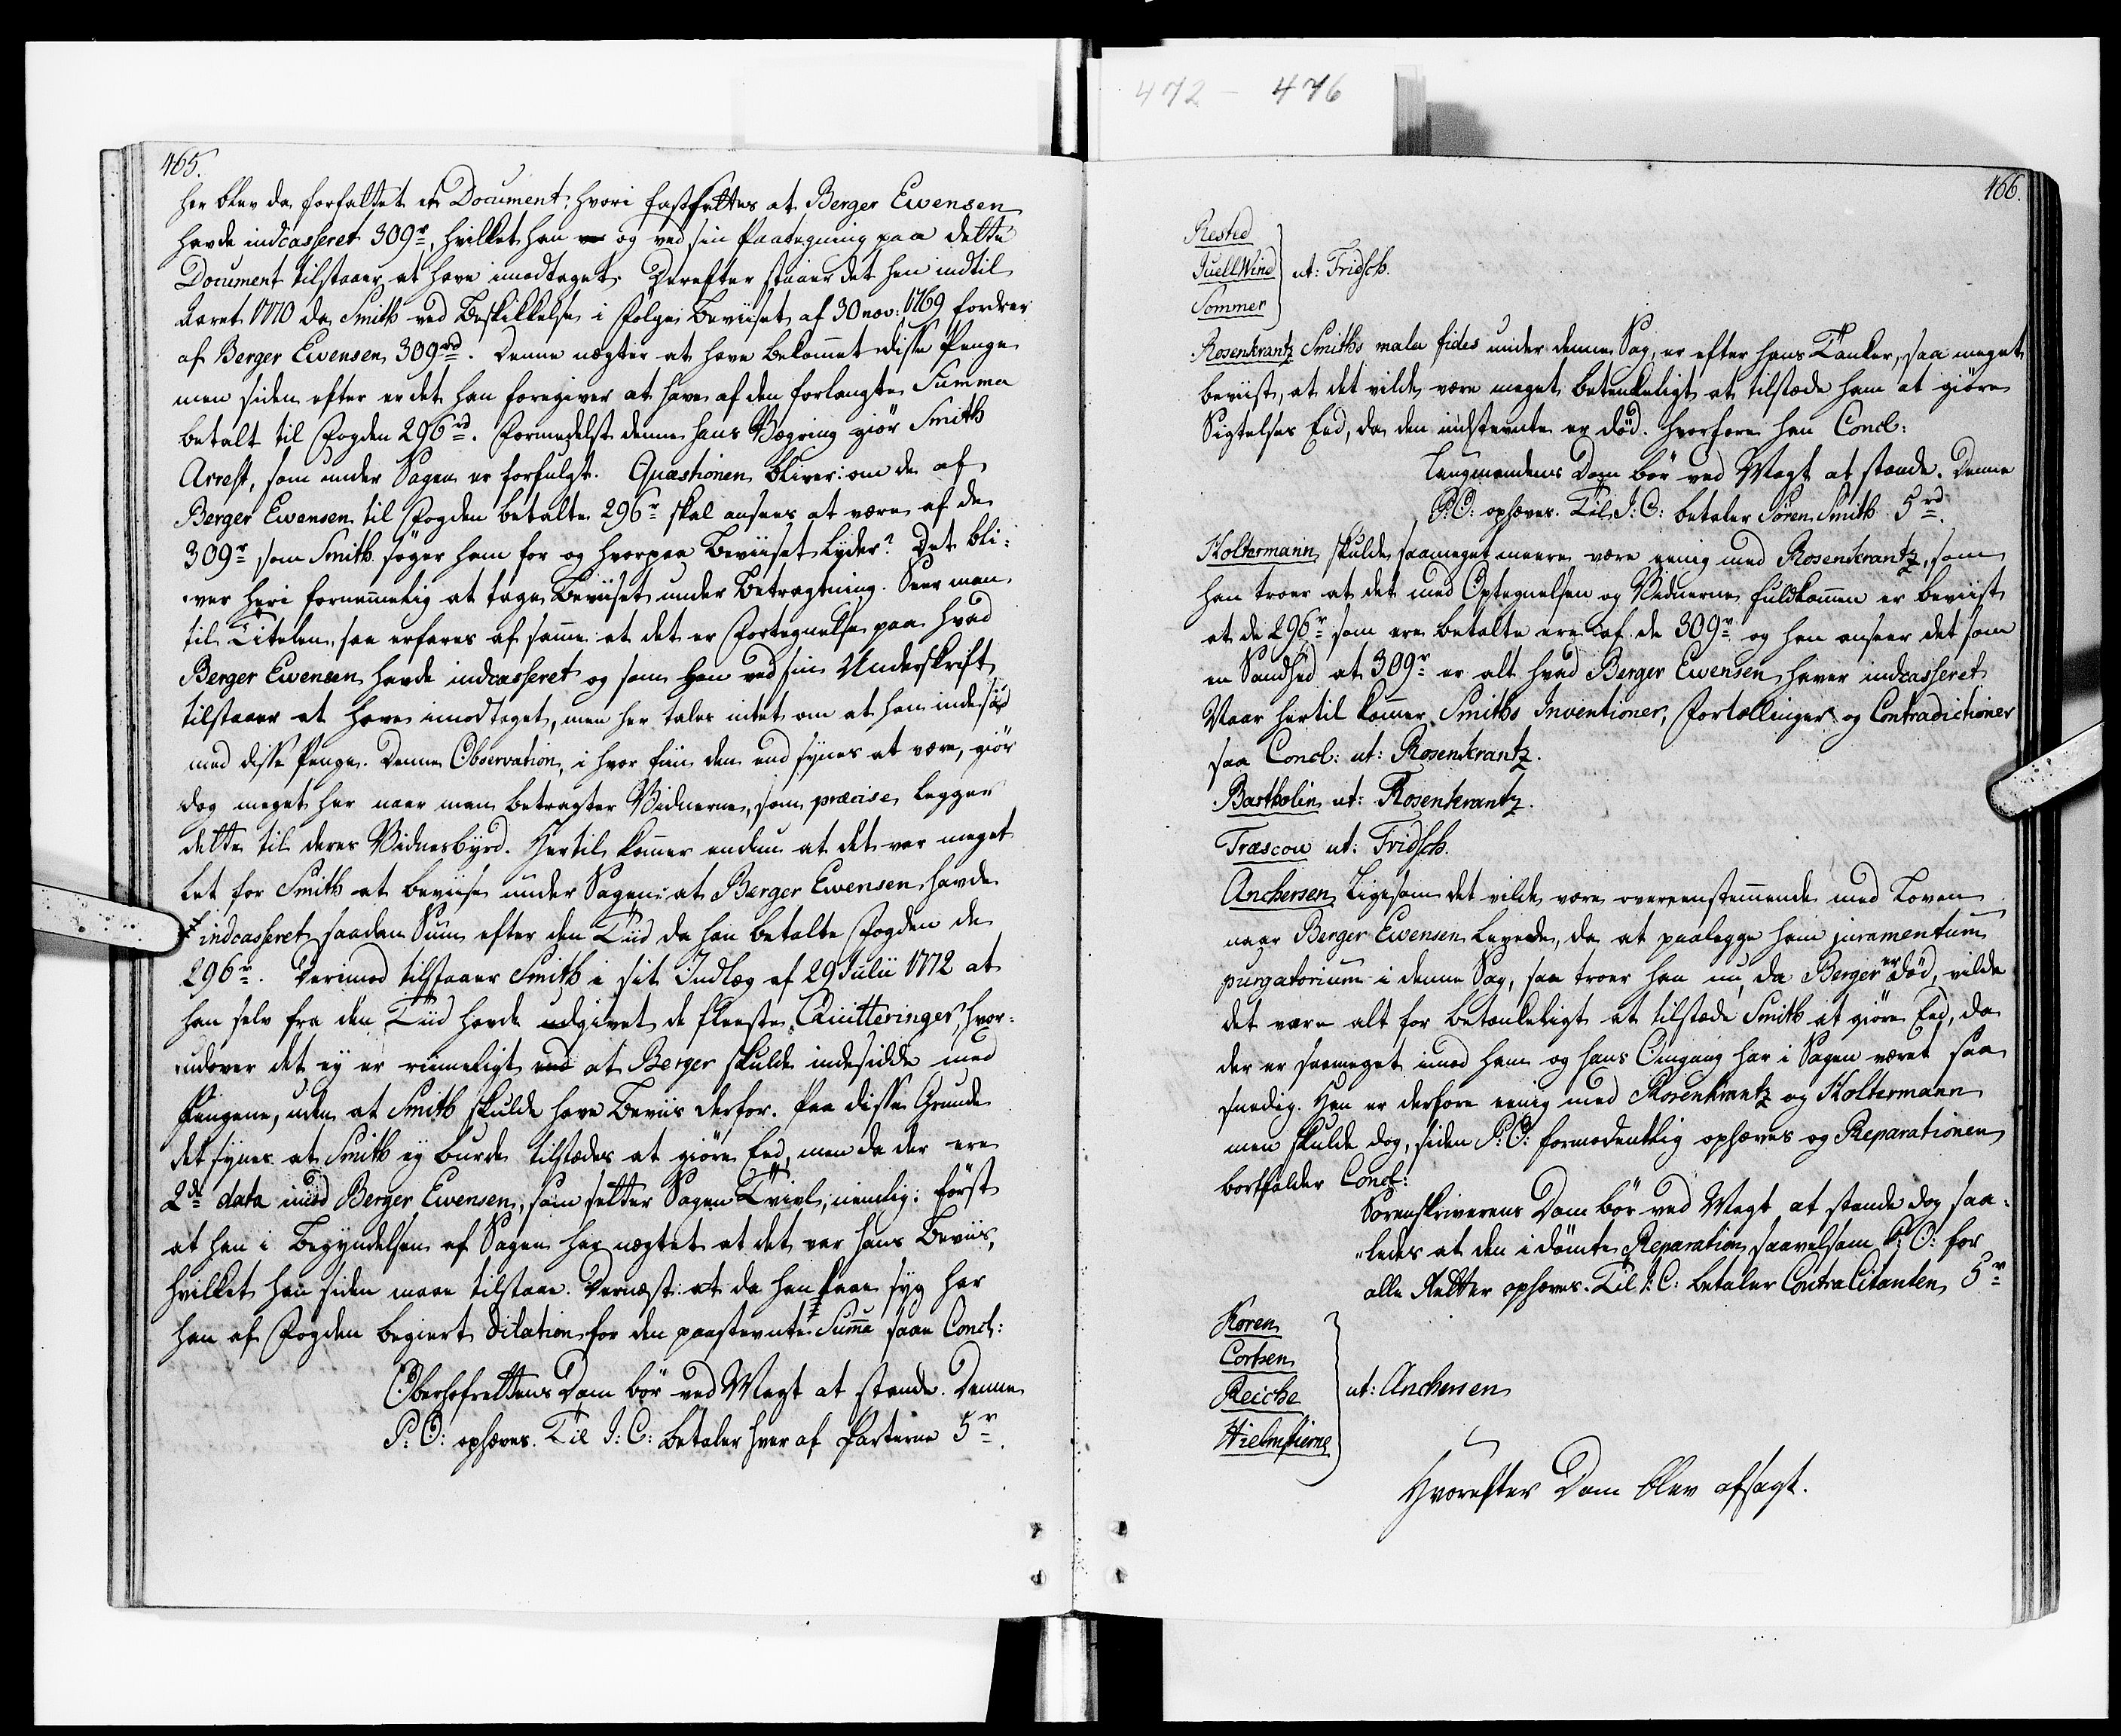 472 - 476
465.
her blev da forfattet et Document, hvori fastsættes at Berger Ewensen
havde indcasseret 309r, hvilket han og ved sin Paategning paa dette
Document tilstaaer at have imodtaget. Derefter staaer det hen indtil
Aaret 1770 da Smith ved Beskikkelse i Følge Beviiset af 30 nov: 1769 fordrer
af Berger Ewensen 309rd. Denne nægter at have bekommet disse Penge
men siden efter er det han foregiver at have af den forlangte Summa
betalt til Fogden 296rd. Formedelst denne hans Vægring giör Smith
Arrest, som under Sagen er forfulgt. Quæstionen bliver: om de af
Berger Ewensen til Fogden betalte 296r skal ansees at være af de
309r som Smith söger ham for og hvorpaa Beviiset lyder? Det bli-
ver heri fornemmelig at tage Beviiset under Betragtning. Seer man
til Titelen, saa erfares af samme at det er Fortegnelse paa hvad
Berger Ewensen havde indcasseret og som han ved sin Underskrift
tilstaaer at have imodtaget, men her tales intet om at han indesad
med disse Penge. Denne Observation, i hvor fiin den end synes at være, giör
dog meget her naar man betragter Vidnerne, som præcise legger
dette til deres Vidnesbyrd. Hertil kommer endnu at det var meget
let for Smith at beviise under Sagen: at Berger Ewensen havde
indcasseret saadan Sum efter den Tiid da han betalte Fogden de
296r. Derimod tilstaaer Smith i sit Indlæg af 29 Julii 1772 at
han selv fra den Tiid havde udgivet de fleeste Qvitteringer, hvor-
udover det ey er rimeligt at Berger skulde indesidde med
Pengene, uden at Smith skulde have Beviis derfor. Paa disse Grunde
det synes at Smith ey burde tilstædes at giöre Eed, men da der ere
2de data imod Berger Ewensen, som setter Sagen i Tvivl, nemlig: först
at han i Begyndelsen af Sagen har nægtet at det var hans Beviis,
hvilket han siden maae tilstaae. Dernæst: at da han laae syg har
han af Fogden begiert Dilation for den paastevnte Summa saae Concl:
Oberhofrettens Dom bör ved Magt at stande. Denne
P: O: ophæves. Til J: C: betaler hver af Parterne 5r.
466.
Rested
JuellWind
Sommer
ut: Fridsch.
Rosenkrantz Smiths mala fides under denne Sag, er efter hans Tanker, saa meget
beviist, at det vilde være meget betenkeligt at tilstæde ham at giöre
Sigtelses Eed, da den indstevnte er död. Hvorfore han Concl:
Laugmandens Dom bör ved Magt at stande. Denne
P: O: ophæves. Til J: C: betaler Sören Smith 5rd.
Holtermann skulde saameget meere være eenig med Rosenkrantz, som
han troer at det med Optegnelsen og Vidnerne fuldkommen er beviist
at de 296r som ere betalte ere af de 309r og han anseer det som
en Sandhed at 309r er alt hvad Berger Ewensen haver indcasseret
Naar hertil kommer Smiths Inventioner, Fortællinger og Contradictioner
saa Concl: ut: Rosenkrantz.
Bartholin ut: Rosenkrantz.
Træscow ut: Fridsch.
Anchersen Ligesom det vilde være overeenstemmende med Loven
naar Berger Ewensen levede, da at paalegge ham juramentum
purgatorium i denne Sag, saa troer han nu, da Berger er död, vilde
det være alt for betænkeligt at tilstæde Smith at giöre Eed, da
der er saameget imod ham og hans Omgang har i Sagen været saa
snedig. Han er derfore eenig med Rosenkrantz og Holtermann
men skulde dog, siden P: O: formodentlig ophæves og Reparationen
bortfalder Concl:
Sorenskriverens Dom bör ved Magt at stande dog saa-
ledes at den idömte Reparation saavelsom P: O: for
alle Retter ophæves. Til J: C: betaler ContraCitanten 5r
Koren
Cortsen
Reiche
Hielmstierne
ut: Anchersen
Hvorefter Dom blev afsagt.